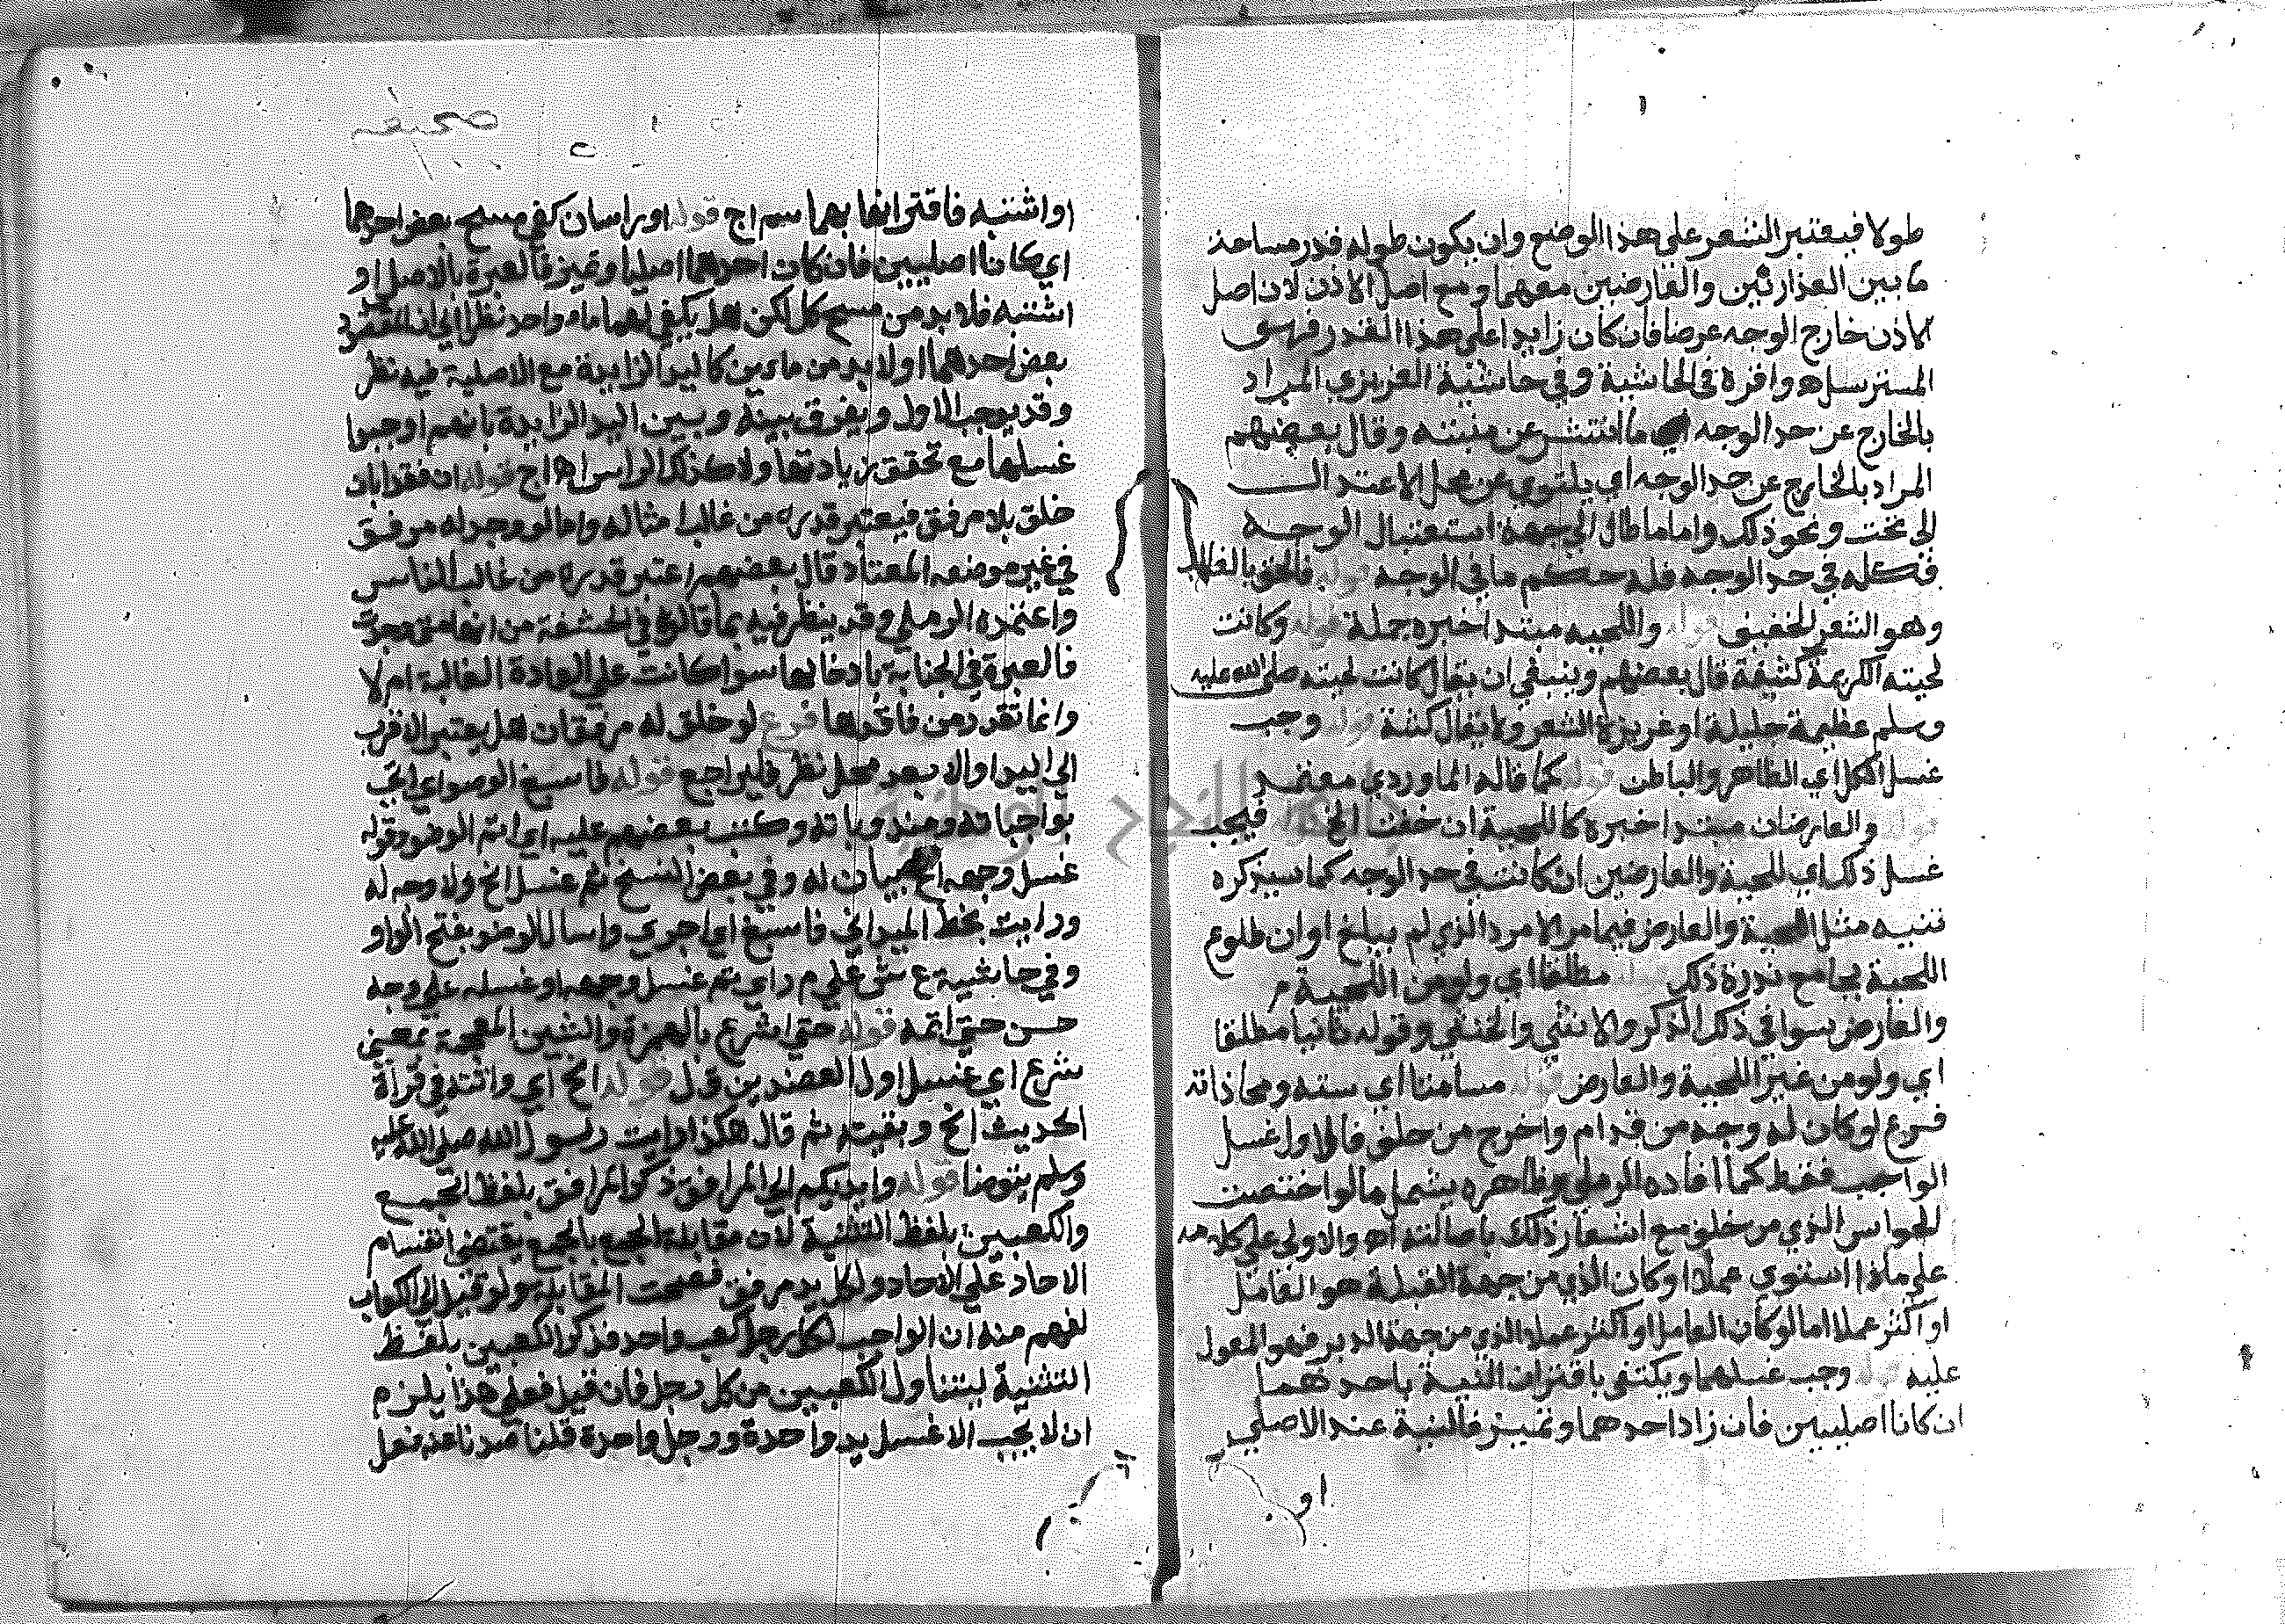 طولا فيعتبر الشعر على هذا الوضع وان يكون طوله قدر مساحة
ما بين العذارين والعارضين معهما ومع اصل الاذن لان اصل
الاذن خارج الوجه عرضا فان كان زايدا على هذا القدر فهو
المسترسل وافره في الحاشية وفي حاشية العزيزي المراد
بالخارج عن حد الوجه ما انتشر عن منبته وقال بعضهم
المراد بالخارج عن حد الوجه اي يلتوي عن محل الاعتدال
الى تحت ونحو ذلك واما ما طال الى جهة استقبال الوجه
فكله في حد الوجه فله حكم ما في الوجه قوله فالحق بالغالب
وهو الشعر الخفيف قوله واللحيه مبتدا خبره جملة قوله وكانت
لحيته الكريمة كثيفة قال بعضهم وينبغي ان يقال كانت لحيته صلى الله عليه
وسلم عظيمة جليلة او غزيزة الشعر ولا يقال كثة قوله وجب
غسل الكل اي الظاهر والباطن قوله كما قاله الماوردي معتمد
قوله والعارضان مبتدا خبره كاللحية ان خفت الخ فيجب
غسل ذلك اي اللحية والعارضين ان كانت في حد الوجه كما سيذكره
تنبيه مثل اللحية والعارض فيما مر الامرد الذي لم يبلغ اوان طلوع
اللحية بجامع ندرة ذلك قوله مطلقا اي ولو من اللحية م
والعارض سوا في ذلك الذكر والانثي والخنثي وقوله ثانيا مطلقا
اي ولو من غير اللحية والعارض قوله مسامتا اي سته ومحاذاته
فرع لو كان له وجه من قدام واخرج من خلف فالاول غسل
الواجب فقط كما افاده الرملي وظاهره يشمل ما لو اختصت
الحواس الذي من خلف مع اشعار ذلك باصالته اه والاولى على كلامه
على ما اذا استوي عملا او كان الذي من جهة القبلة هو العامل
او اكثر عملا اما لو كان العامل او اكثر عملا الذي من جهة الدبر فهو المعول
عليه قوله وجب غسلهما ويكتفي باقتران النية باحدهما
ان كانا اصليين فان زاد احدهما وتميز فالنية عند الاصلي
او
صحيفه
او اشتبه فاقترانها بهما سم اج قوله او راسان كفي مسح بعض احدهما
اي كانا اصليين فان كان احدهما اصليا وتميز فالعبرة بالاصل او
اشتبه فلا بد من مسح كل لكن هل يكفي لهما ماء واحد نظرا الى ان المقصود
بعض احدهما او لا بد من ماءين كاليد الزايدة مع الاصلية فيه نظر
وقد يوجب الاول ويفرق بينه وبين اليد الزايدة بانهم اوجبوا
غسلها مع تحقق زيادتها ولا كذلك الراس اه اج قوله ان فقد ابان
خلق بلا مرفق فيعتبر قدره من غالب امثاله واما لو وجد له مرفق
في غير موضعه المعتاد قال بعضهم اعتبر قدره من غالب الناس
واعتمده الرملي وقد ينظر فيه بما قالوه في الحشفة من انها متى وجدت
فالعبرة في الجنابة بادخالها سوا كانت علي العادة الغالبة ام لا
وانما تقدر من فاقدها فرع لو خلق له مرفقان هل يعتبر الاقرب
الى اليد او الابعد محل نظر فليراجع قوله فاسبغ الوضو اي اتى
بواجباته ومندوباته وكتب بعضهم عليه اي اتم الوضو وقوله
غسل وجهه الخ بيان له وفي بعض النسخ ثم غسل الخ ولا وجه له
ورايت بخط الميداني فاسبغ اي اجري واسال الوضو بفتح الواو
وفي حاشية ع ش علي م ر اي ثم غسل وجهه او غسله علي وجه
حسن حتي اتمه قوله حتي اشرع بالهمزة والشين المعجمة بمعني
شرع اي غسل اول العضدين ق ل قوله الخ اي وانته في قرأة
الحديث الخ وبقيته ثم قال هكذا رايت رسول الله صلى الله عليه
وسلم يتوضا قوله وايديكم الى المرافق ذكر المرافق بلفظ الجمع
والكعبين بلفظ التثنية لان مقابلة الجمع بالجمع يقتضي انقسام
الاحاد علي الاحاد ولكل يد مرفق فصحت المقابلة ولو قيل الى الكعاب
لفهم منه ان الواجب لكل رجل كعب واحد فذكر الكعبين بلفظ
التثنية ليتناول الكعبين من كل رجل فان قيل فعلي هذا يلزم
ان لا يجب الا غسل يد واحدة ورجل واحدة قلنا صدنا عنه فعل